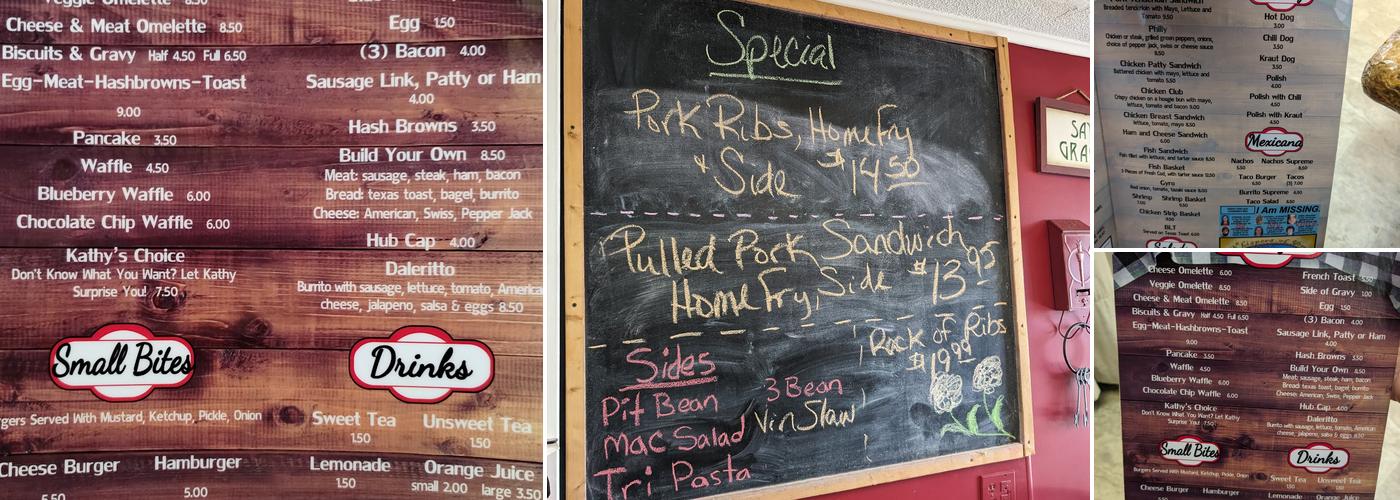 Cheese & Meat Omelette 8.50
Biscuits & Gravy Half 4.50 Full 6.50
Egg-Meat-Hashbrowns-Toast
9.00
Pancake 3.50
Waffle 4.50
Blueberry Waffle 6.00
Chocolate Chip Waffle 6.00
Kathy's Choice
Don't Know What You Want? Let Kathy
Surprise You! 7.50
Small Bites
Served With Mustard, Ketchup, Pickle, Onion
Cheese Burger
Hamburger
5.50
5.00
Egg 1.50
(3) Bacon 4.00
Sausage Link, Patty or Ham
4.00
Hash Browns 3.50
Build Your Own 8.50
Meat: sausage, steak, ham, bacon
Bread: texas toast, bagel, burrito
Cheese: American, Swiss, Pepper Jack
Hub Cap 4.00
Daleritto
Burrito with sausage, lettuce, tomato,
cheese, jalapeno, salsa & eggs 8.50
Drinks
Sweet Tea
Unsweet Tea
1.50
1.50
Lemonade
Orange Juice
1.50
small 2.00 large 3.50
Special
Pork Ribs, Home Fry
& Side $14.50
Pulled Pork Sandwich
Home Fry, Side $13.95
Rack of Ribs
$19.99
Sides
Pit Bean
Mac Salad
Tri Pasta
3 Bean
Vin Slaw
Breaded tenderloin with Mayo, Lettuce and
Tomato 9.50
Philly
Chicken or steak, grilled green peppers, onions,
choice of pepper jack, swiss or cheese sauce
9.50
Chicken Patty Sandwich
Battered chicken with mayo, lettuce and
tomato 5.50
Chicken Club
Crispy chicken on a hoagie bun with mayo,
lettuce, tomato and bacon 9.00
Chicken Breast Sandwich
lettuce, tomato, mayo 8.50
Ham and Cheese Sandwich
Fish Sandwich
Fish fillet with lettuce, and tarter sauce 8.50
Fish Basket
Gyro
Shrimp
Shrimp Basket
Chicken Strip Basket
BLT
Served on Texas Toast 6.00
Hot Dog
3.00
Chili Dog
3.50
Kraut Dog
3.50
Polish
4.00
Polish with Chili
4.50
Polish with Kraut
4.50
Mexicana
Nachos
Nachos Supreme
Taco Burger
Tacos
Burrito Supreme
Taco Salad
I Am MISSING.
Cheese Omelette 6.00
Veggie Omelette 8.50
Cheese & Meat Omelette 8.50
Biscuits & Gravy Half 4.50 Full 6.50
Egg-Meat-Hashbrowns-Toast
9.00
Pancake 3.50
Waffle 4.50
Blueberry Waffle 6.00
Chocolate Chip Waffle 6.00
Kathy's Choice
Don't Know What You Want? Let Kathy
Surprise You! 7.50
Small Bites
Burgers Served With Mustard, Ketchup, Pickle, Onion
Cheese Burger
Hamburger
French Toast
Side of Gravy 1.00
Egg 1.50
(3) Bacon 4.00
Sausage Link, Patty or Ham
4.00
Hash Browns 3.50
Build Your Own 8.50
Meat: sausage, steak, ham, bacon
Bread: texas toast, bagel, burrito
Cheese: American, Swiss, Pepper Jack
Hub Cap 4.00
Daleritto
Burrito with sausage, lettuce, tomato, American
cheese, jalapeno, salsa & eggs 8.50
Drinks
Sweet Tea
Unsweet Tea
1.50
1.50
Lemonade
Orange Juice